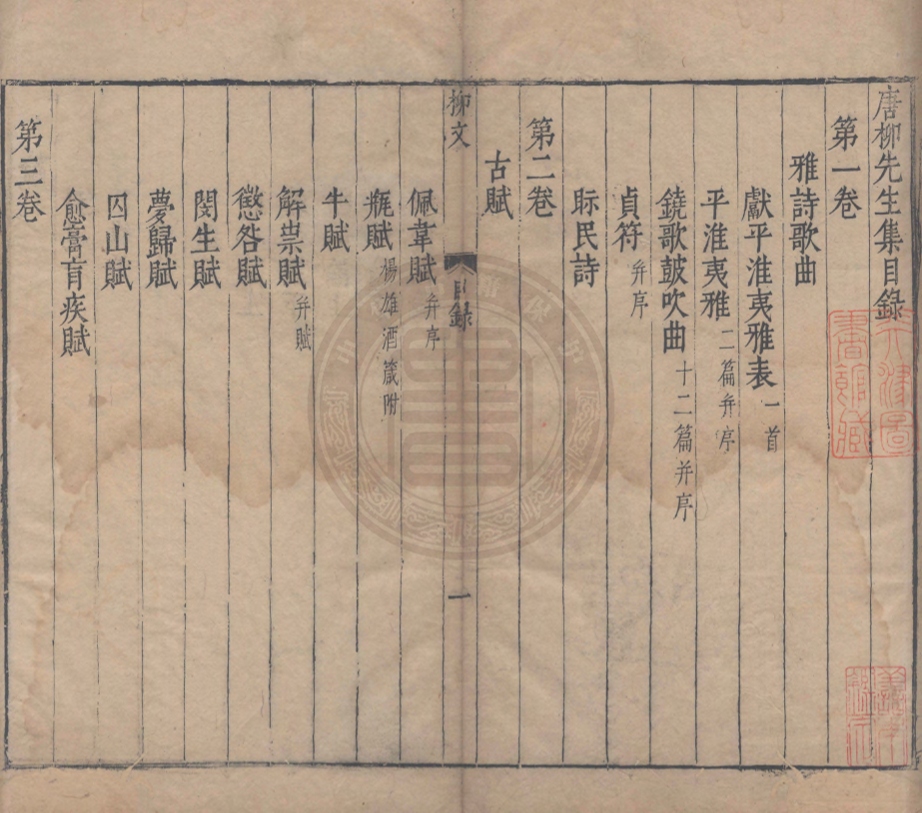 唐柳先生集目錄
第一卷
雅詩歌曲
獻平淮夷雅表 一首
平淮夷雅 二篇并序
鐃歌鼓吹曲 十二篇并序
貞符 并序
眎民詩
第二卷
古賦
柳文 目錄 一
佩韋賦 并序
瓶賦 楊雄酒箴附
牛賦
解祟賦 并賦
懲咎賦
閔生賦
夢歸賦
囚山賦
愈膏肓疾賦
第三卷
天津圖
書館藏